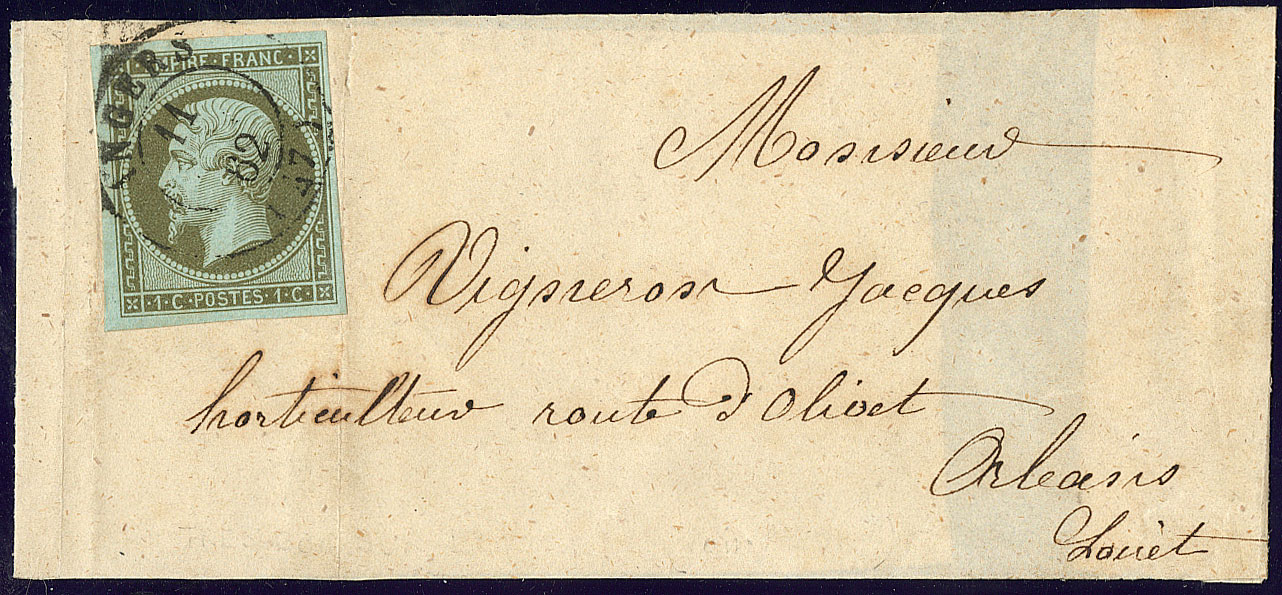 ANGERS
11
62
EMPIRE·FRANC·
·1·C·POSTES·1·C·
Monsieur
Vigneron Jacques
horticulteur route d'Olivet
Orleans
Loiret